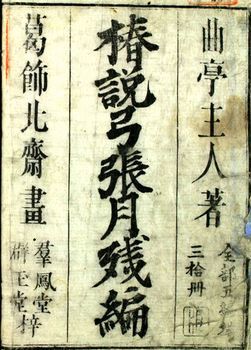 曲亭主人著
全部五
三拾冊
椿説弓張月残編
葛飾北齋畫
羣鳳堂
堂梓